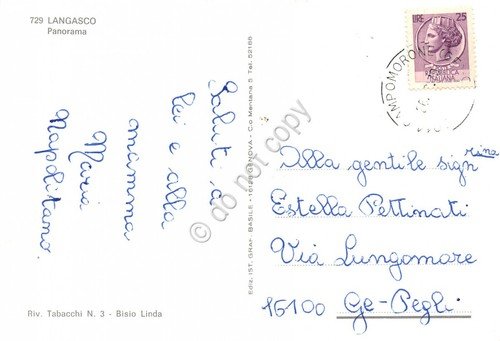 729 LANGASCO
Panorama
Saluti a
lei e alla
mamma
Maria
Napolitano.
Riv. Tabacchi N. 3 - Bisio Linda
Ediz. IST. GRAF. BASILE - 16129 GENOVA - C.o Mentana 5 Tel. 52166
do not copy
LIRE 25
CAMPOMORONE
Alla gentile signrina
Estella Pettinati
Via Lungomare
16100 Ge-Pegli